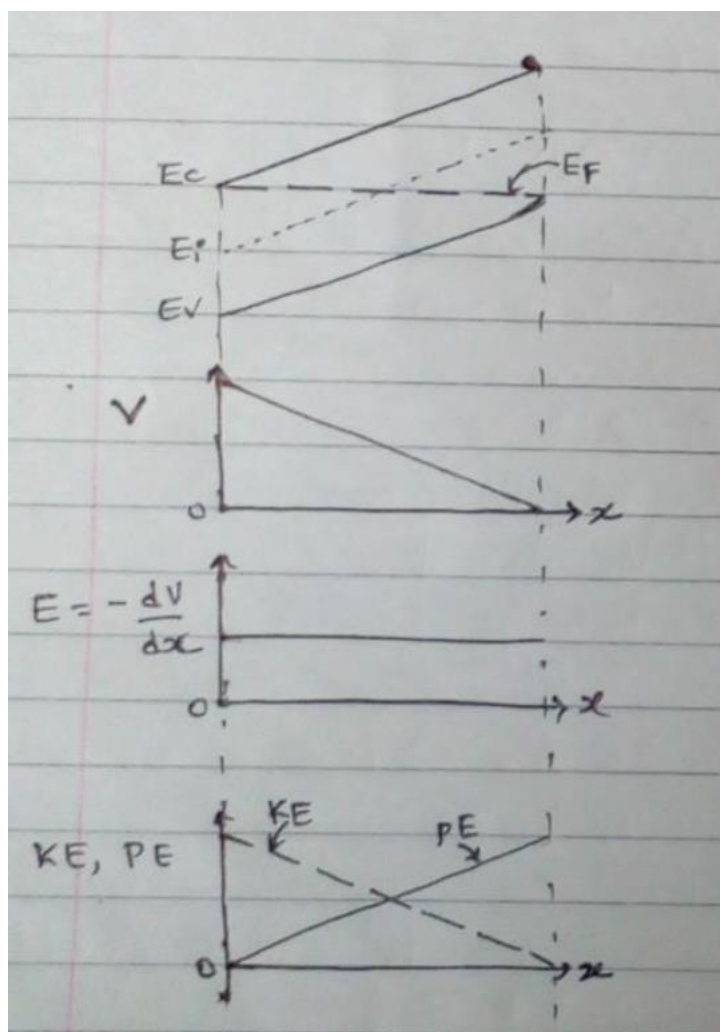 Ec
EF
Ei
Ev
V
0
x
E = - dV/dx
0
x
KE
PE
KE, PE
0
x